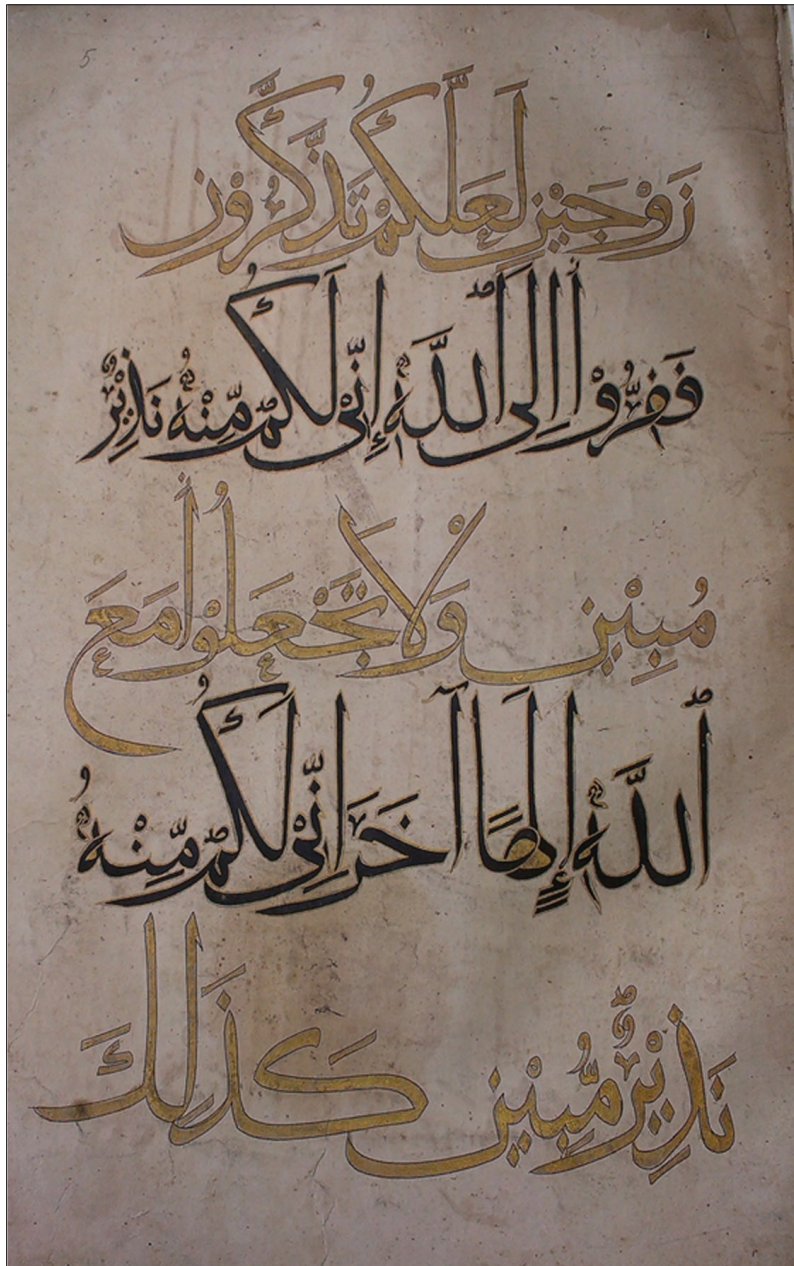 5
زَوْجَيْنِ لَعَلَّكُمْ تَذَكَّرُونَ
فَفِرُّوا إِلَى ٱللَّهِ إِنِّى لَكُمْ مِنْهُ نَذِيرٌ
مُبِيْنٌ وَلَا تَجْعَلُوْا مَعَ
ٱللَّهِ إِلٰهًا آخَرَ إِنِّى لَكُمْ مِّنْهُ
نَذِيْرٌ مُّبِيْنٌ كَذَلِكَ